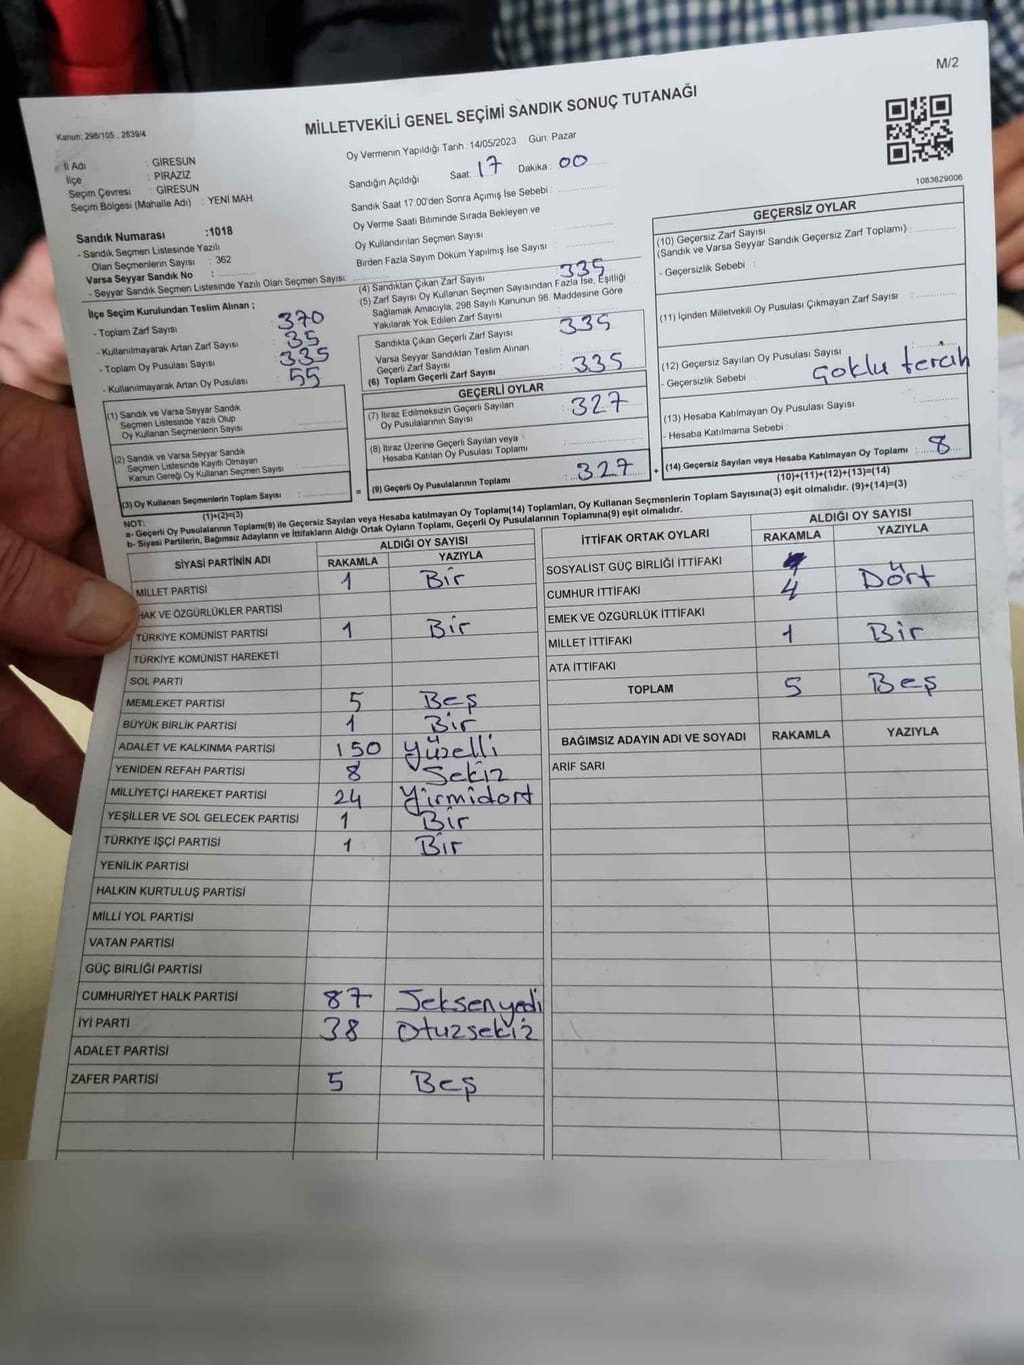 M/2
Kanun; 298/105 , 2839/4
MİLLETVEKİLİ GENEL SEÇİMİ SANDIK SONUÇ TUTANAĞI
İl Adı : GİRESUN
İlçe : PİRAZİZ
Seçim Çevresi : GİRESUN
Seçim Bölgesi (Mahalle Adı) : YENİ MAH
Sandık Numarası :1018
- Sandık Seçmen Listesinde Yazılı
Olan Seçmenlerin Sayısı : 362
Varsa Seyyar Sandık No :
- Seyyar Sandık Seçmen Listesinde Yazılı Olan Seçmen Sayısı:
İlçe Seçim Kurulundan Teslim Alınan ;
- Toplam Zarf Sayısı : 370
- Kullanılmayarak Artan Zarf Sayısı : 35
- Toplam Oy Pusulası Sayısı : 335
- Kullanılmayarak Artan Oy Pusulası : 55
(1) Sandık ve Varsa Seyyar Sandık
Seçmen Listesinde Yazılı Olup
Oy Kullanan Seçmenlerin Sayısı
(2) Sandık ve Varsa Seyyar Sandık
Seçmen Listesinde Kayıtlı Olmayan
Kanun Gereği Oy Kullanan Seçmen Sayısı :
(3) Oy Kullanan Seçmenlerin Toplam Sayısı :
(1)+(2)=(3)
Oy Vermenin Yapıldığı Tarih :14/05/2023 Gün: Pazar
Sandığın Açıldığı Saat: 17 Dakika : 00
Sandık Saat 17:00'den Sonra Açımış İse Sebebi :
Oy Verme Saati Bitiminde Sırada Bekleyen ve
Oy Kullandırılan Seçmen Sayısı :
Birden Fazla Sayım Döküm Yapılmış İse Sayısı :
(4) Sandıktan Çıkan Zarf Sayısı : 335
(5) Zarf Sayısı Oy Kullanan Seçmen Sayısından Fazla İse, Eşitliği
Sağlamak Amacıyla, 298 Sayılı Kanunun 98. Maddesine Göre
Yakılarak Yok Edilen Zarf Sayısı :
Sandıkta Çıkan Geçerli Zarf Sayısı : 335
Varsa Seyyar Sandıktan Teslim Alınan
Geçerli Zarf Sayısı :
(6) Toplam Geçerli Zarf Sayısı : 335
GEÇERLİ OYLAR
(7) İtiraz Edilmeksizin Geçerli Sayılan
Oy Pusulalarının Sayısı : 327
(8) İtiraz Üzerine Geçerli Sayılan veya
Hesaba Katılan Oy Pusulası Toplamı :
= (9) Geçerli Oy Pusulalarının Toplamı : 327 +
1083629006
GEÇERSİZ OYLAR
(10) Geçersiz Zarf Sayısı
(Sandık ve Varsa Seyyar Sandık Geçersiz Zarf Toplamı) :
- Geçersizlik Sebebi :
(11) İçinden Milletvekili Oy Pusulası Çıkmayan Zarf Sayısı :
(12) Geçersiz Sayılan Oy Pusulası Sayısı :
- Geçersizlik Sebebi : Çoklu tercih
(13) Hesaba Katılmayan Oy Pusulası Sayısı :
- Hesaba Katılmama Sebebi :
(14) Geçersiz Sayılan veya Hesaba Katılmayan Oy Toplamı : 8
(10)+(11)+(12)+(13)=(14)
NOT:
a- Geçerli Oy Pusulalarının Toplamı(9) ile Geçersiz Sayılan veya Hesaba katılmayan Oy Toplamı(14) Toplamları, Oy Kullanan Seçmenlerin Toplam Sayısına(3) eşit olmalıdır. (9)+(14)=(3)
b- Siyasi Partilerin, Bağımsız Adayların ve İttifakların Aldığı Ortak Oyların Toplamı, Geçerli Oy Pusulalarının Toplamına(9) eşit olmalıdır.
SİYASİ PARTİNİN ADI ALDIĞI OY SAYISI
RAKAMLA YAZIYLA
MİLLET PARTİSİ 1 Bir
HAK VE ÖZGÜRLÜKLER PARTİSİ
TÜRKİYE KOMÜNİST PARTİSİ 1 Bir
TÜRKİYE KOMÜNİST HAREKETİ
SOL PARTİ
MEMLEKET PARTİSİ 5 Beş
BÜYÜK BİRLİK PARTİSİ 1 Bir
ADALET VE KALKINMA PARTİSİ 150 Yüzelli
YENİDEN REFAH PARTİSİ 8 Sekiz
MİLLİYETÇİ HAREKET PARTİSİ 24 Yirmidört
YEŞİLLER VE SOL GELECEK PARTİSİ 1 Bir
TÜRKİYE İŞÇİ PARTİSİ 1 Bir
YENİLİK PARTİSİ
HALKIN KURTULUŞ PARTİSİ
MİLLİ YOL PARTİSİ
VATAN PARTİSİ
GÜÇ BİRLİĞİ PARTİSİ
CUMHURİYET HALK PARTİSİ 87 Seksenyedi
İYİ PARTİ 38 Otuzsekiz
ADALET PARTİSİ
ZAFER PARTİSİ 5 Beş
İTTİFAK ORTAK OYLARI ALDIĞI OY SAYISI
RAKAMLA YAZIYLA
SOSYALİST GÜÇ BİRLİĞİ İTTİFAKI
CUMHUR İTTİFAKI 4 Dört
EMEK VE ÖZGÜRLÜK İTTİFAKI
MİLLET İTTİFAKI 1 Bir
ATA İTTİFAKI
TOPLAM 5 Beş
BAĞIMSIZ ADAYIN ADI VE SOYADI RAKAMLA YAZIYLA
ARİF SARI